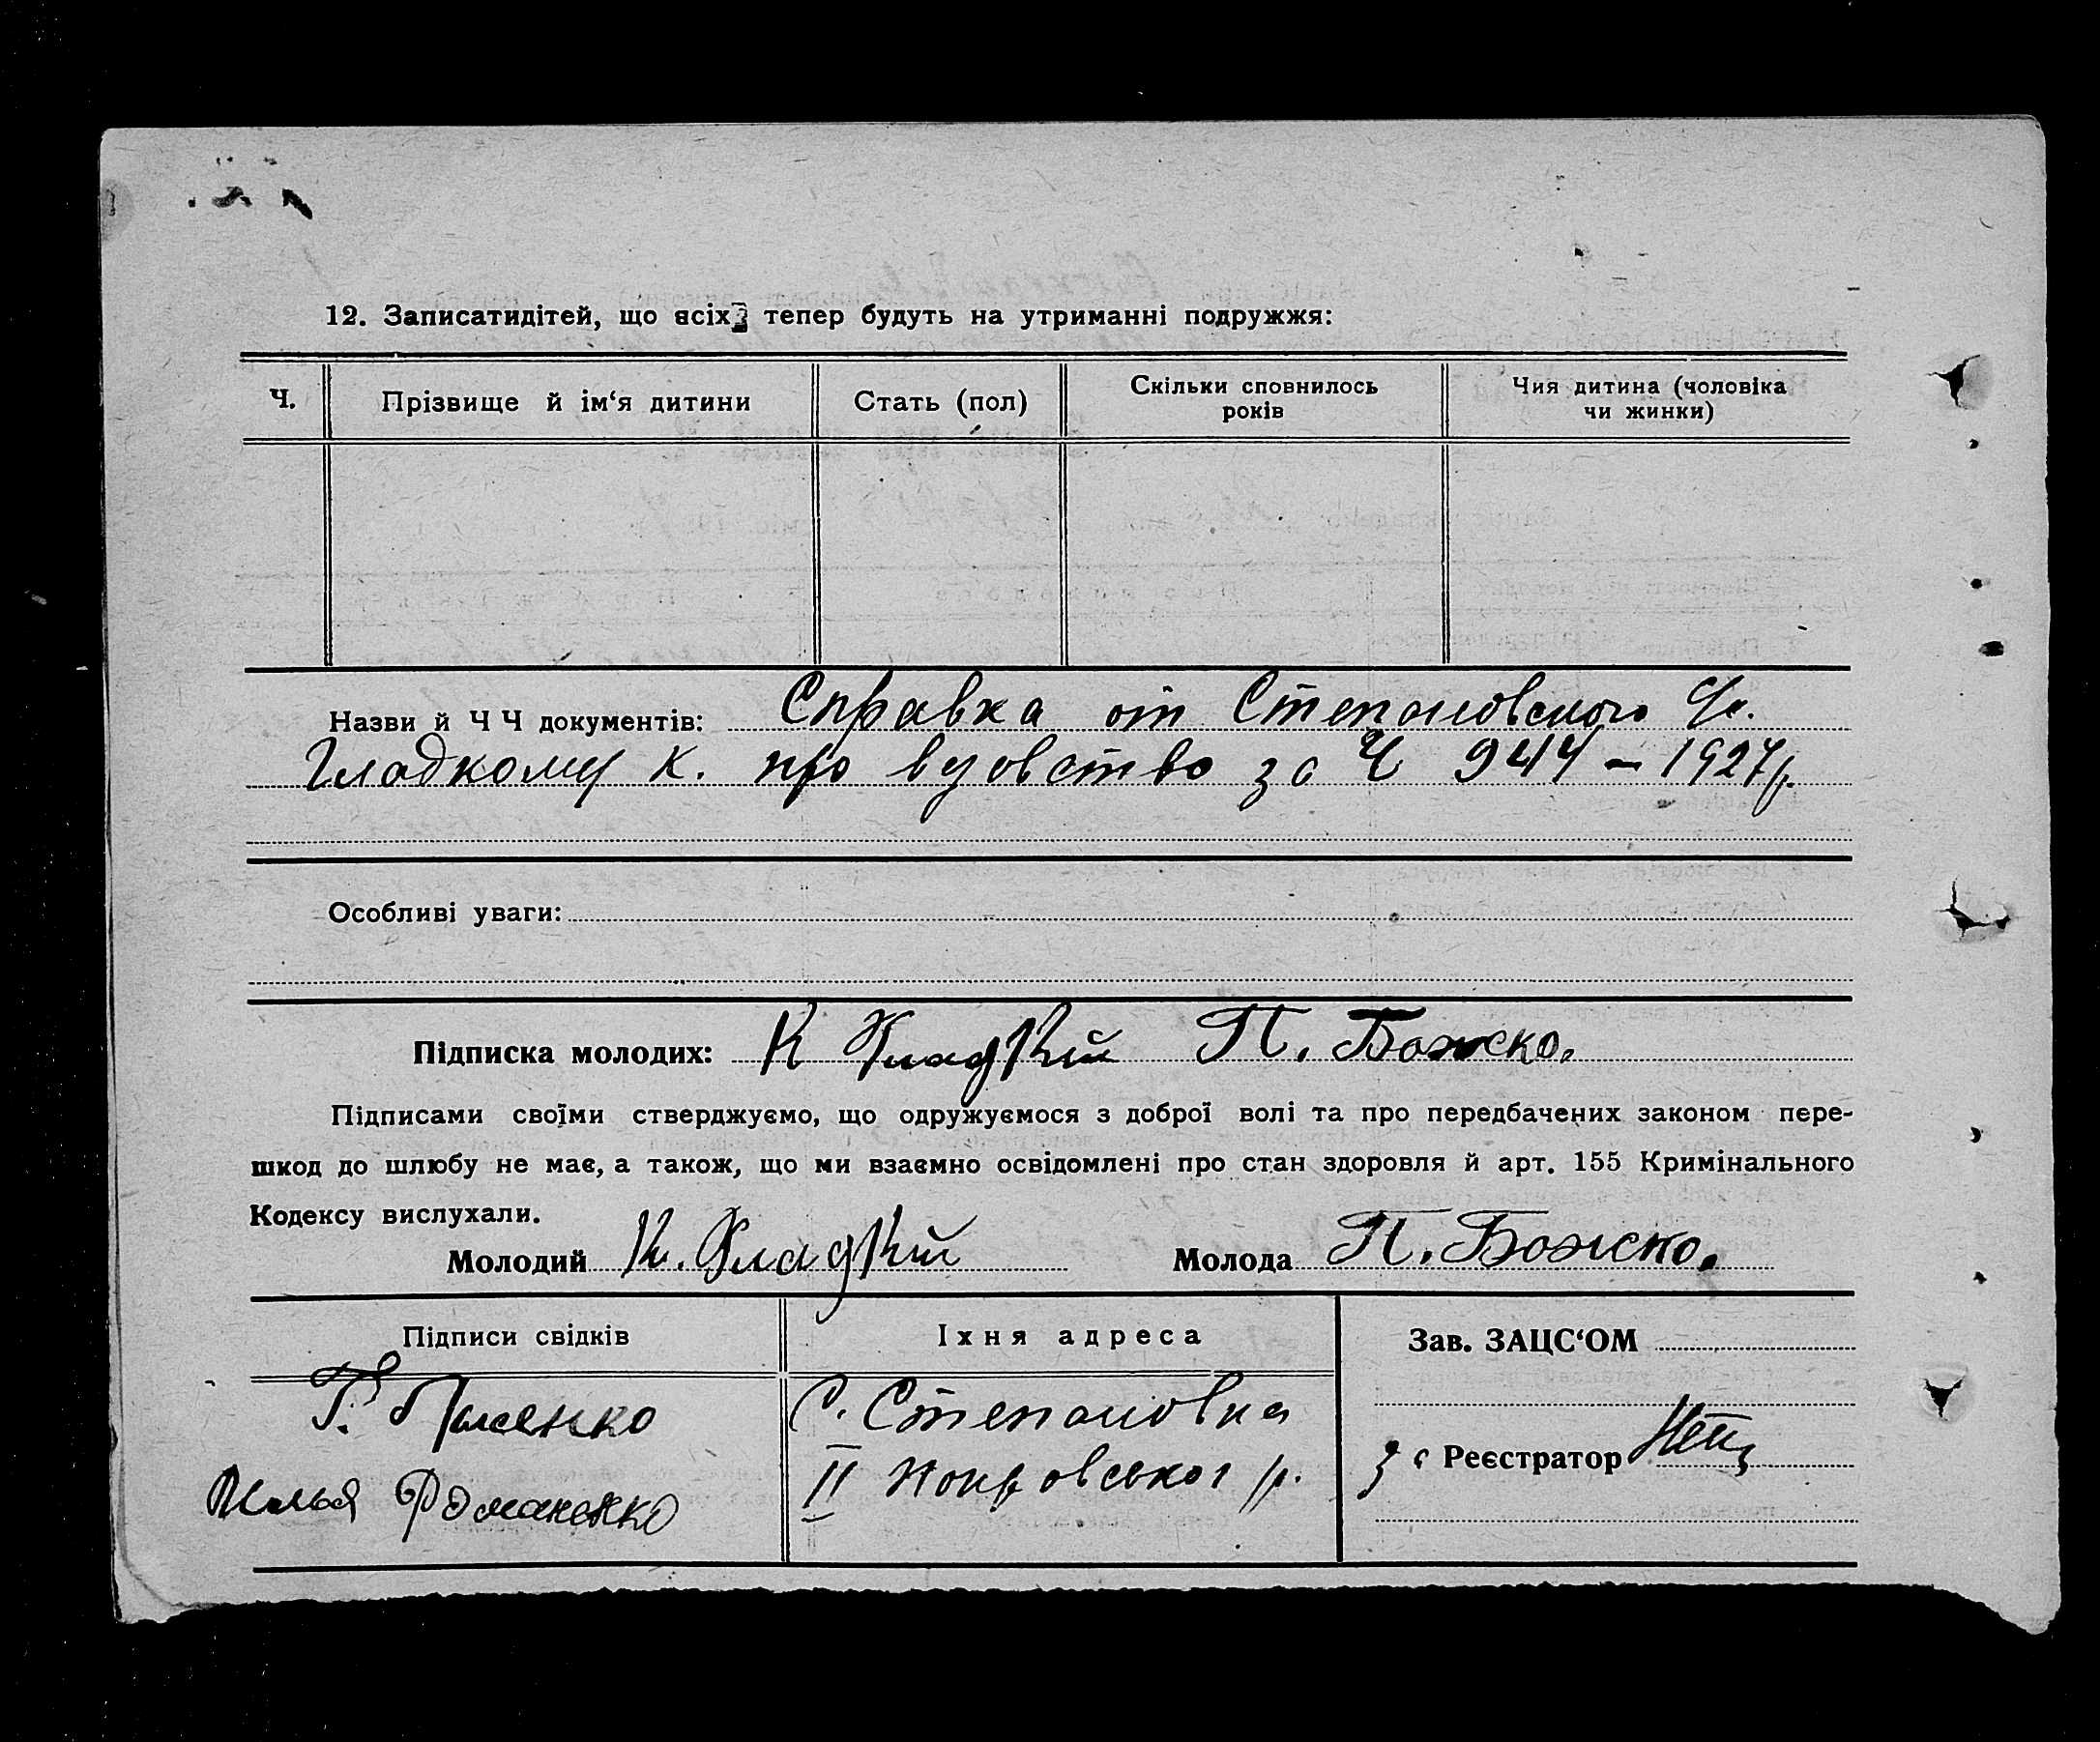 12. Записатидітей, що всіх тепер будуть на утриманні подружжя:
Ч. Прізвище й ім‘я дитини Стать (пол) Скільки сповнилось років Чия дитина (чоловіка чи жинки)
Назви й Ч Ч документів: Справка от Степановского С/к.
Гладкому К. про вдовство за Ч 944 – 1927 р.
Особливі уваги:
Підписка молодих: К Гладкій П. Божко.
Підписами своїми стверджуємо, що одружуємося з доброї волі та про передбачених законом пере-
шкод до шлюбу не має, а також, що ми взаємно освідомлені про стан здоровля й арт. 155 Кримінального
Кодексу вислухали.
Молодий К. Гладкій Молода П. Божко.
Підписи свідків Їхня адреса Зав. ЗАЦС‘ОМ
Г. С. Степановка
Илья Романенко ІІ Покровського р.
Реєстратор